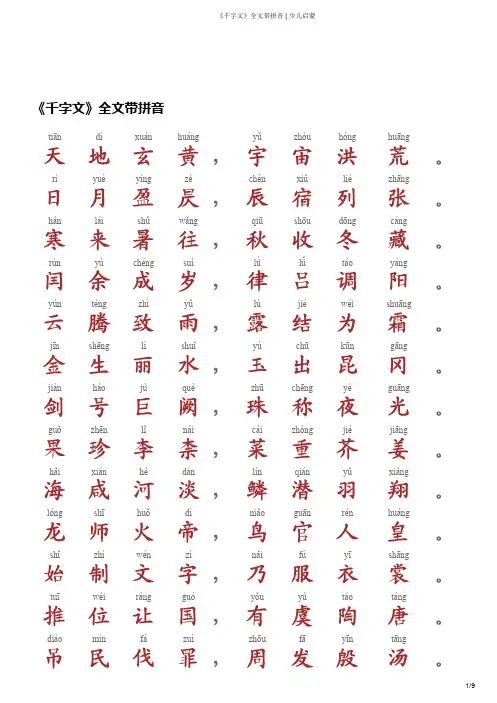 《千字文》全文带拼音 | 少儿启蒙
《千字文》全文带拼音
tiān dì xuán huáng yǔ zhòu hóng huāng
天 地 玄 黄 ， 宇 宙 洪 荒 。
rì yuè yíng zè chén xiù liè zhāng
日 月 盈 昃 ， 辰 宿 列 张 。
hán lái shǔ wǎng qiū shōu dōng cáng
寒 来 暑 往 ， 秋 收 冬 藏 。
rùn yú chéng suì lǜ lǚ tiáo yáng
闰 余 成 岁 ， 律 吕 调 阳 。
yún téng zhì yǔ lù jié wéi shuāng
云 腾 致 雨 ， 露 结 为 霜 。
jīn shēng lì shuǐ yù chū kūn gāng
金 生 丽 水 ， 玉 出 昆 冈 。
jiàn hào jù què zhū chēng yè guāng
剑 号 巨 阙 ， 珠 称 夜 光 。
guǒ zhēn lǐ nài cài zhòng jiè jiāng
果 珍 李 柰 ， 菜 重 芥 姜 。
hǎi xián hé dàn lín qián yǔ xiáng
海 咸 河 淡 ， 鳞 潜 羽 翔 。
lóng shī huǒ dì niǎo guān rén huáng
龙 师 火 帝 ， 鸟 官 人 皇 。
shǐ zhì wén zì nǎi fú yī shāng
始 制 文 字 ， 乃 服 衣 裳 。
tuī wèi ràng guó yǒu yú táo táng
推 位 让 国 ， 有 虞 陶 唐 。
diào mín fá zuì zhōu fā yīn tāng
吊 民 伐 罪 ， 周 发 殷 汤 。
1/9